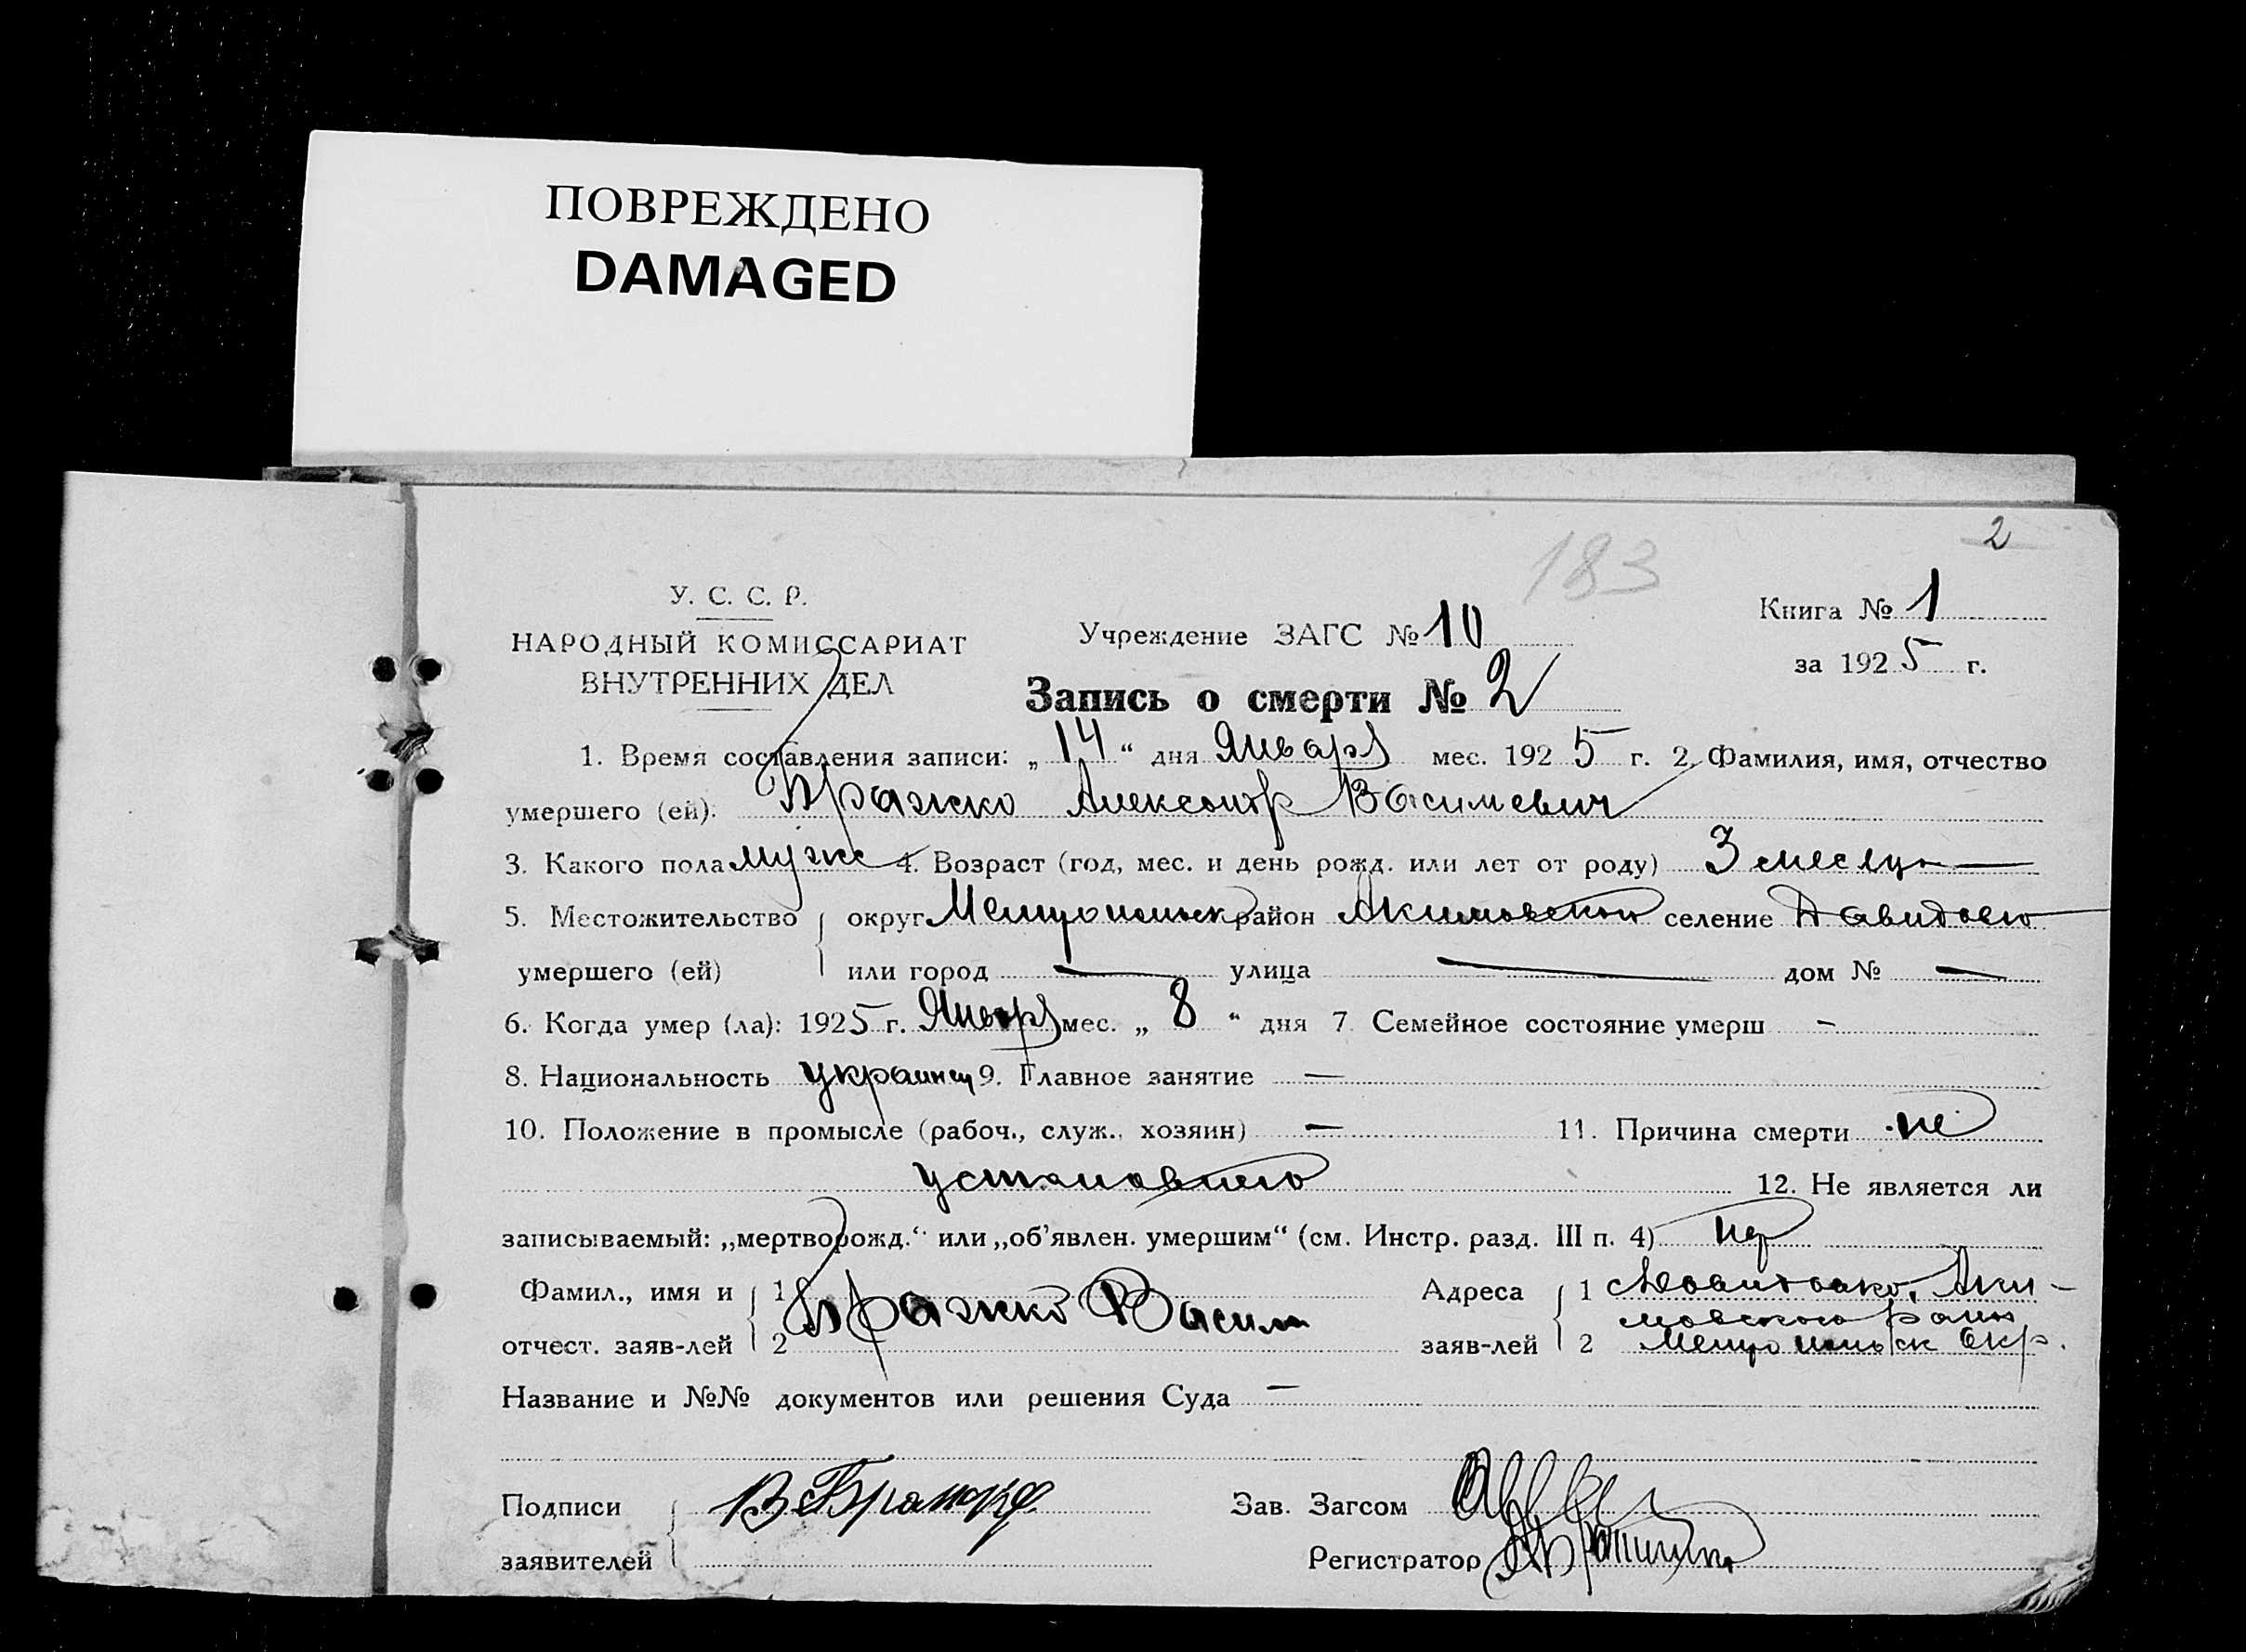 ПОВРЕЖДЕНО
DAMAGED
2
183
У. С. С. Р.
НАРОДНЫЙ КОМИССАРИАТ
ВНУТРЕННИХ ДЕЛ
Учреждение ЗАГС № 10
Книга № 1
за 1925 г.
Запись о смерти № 2
1. Время составления записи: „14“ дня Января мес. 1925 г. 2. Фамилия, имя, отчество
умершего (ей): Бражко Александр Васильевич
3. Какого пола мужс 4. Возраст (год, мес. и день рожд. или лет от роду) 3 месяца
5. Местожительство округ Мелитопольск район Акимовский селение Давидовко
умершего (ей) или город — улица — дом № —
6. Когда умер (ла): 1925 г. Января мес. „8“ дня 7. Семейное состояние умерш –
8. Национальность украинец 9. Главное занятие —
10. Положение в промысле (рабоч., служ., хозяин) — 11. Причина смерти не
установлено 12. Не является ли
записываемый: „мертворожд.“ или „об’явлен. умершим“ (см. Инстр. разд. III п. 4) нет
Фамил., имя и 1 Бражко Васили Адреса 1 с Давидовко, Аки-
мовского район
отчест. заяв-лей 2 заяв-лей 2 Мелитопольск Окр.
Название и №№ документов или решения Суда –
Подписи В Бражко Зав. Загсом
заявителей Регистратор